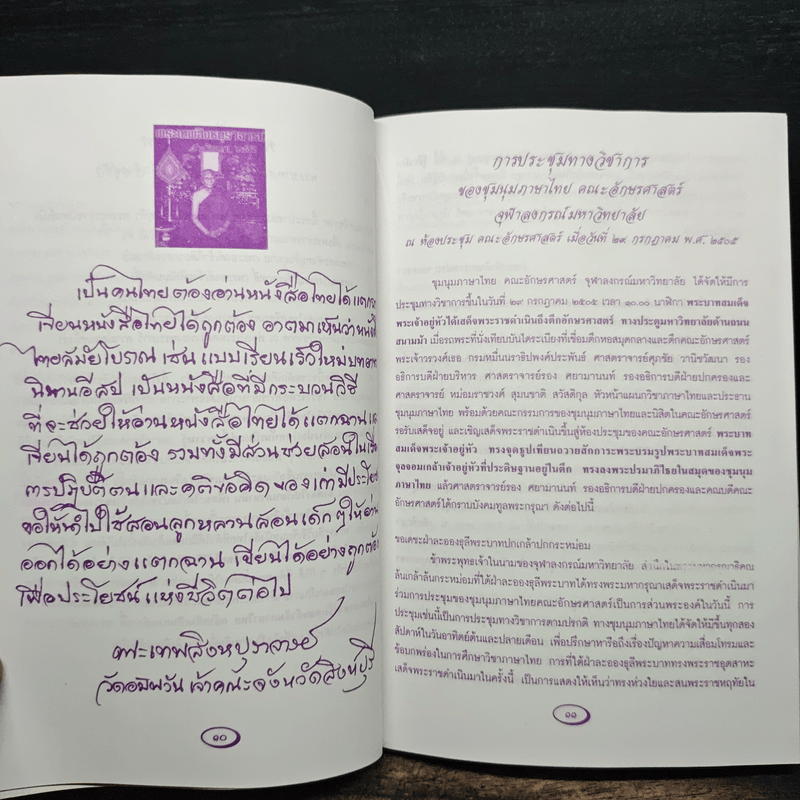 พระเทพสิงหบุราจารย์
เป็นคนไทยต้องอ่านหนังสือไทยได้แตกฉาน
เขียนหนังสือไทยได้ถูกต้อง อาตมาเห็นว่าหนังสือ
ไทยสมัยโบราณ เช่น แบบเรียนเร็วใหม่
นิทานอีสป เป็นหนังสือที่มีกระบวนวิธี
ที่จะช่วยให้อ่านหนังสือไทยได้แตกฉาน
เขียนได้ถูกต้อง รวมทั้งมีส่วนช่วยสอนใน
การปฏิบัติตนและคติข้อคิดของเก่ามีประโยชน์
ขอให้นำไปใช้สอนลูกหลานสอนเด็กๆให้อ่าน
ออกได้อย่างแตกฉาน เขียนได้อย่างถูกต้อง
เพื่อประโยชน์แห่งชีวิตต่อไป
พระเทพสิงหบุราจารย์
วัดอัมพวัน เจ้าคณะจังหวัดสิงห์บุรี
๑๐
การประชุมทางวิชาการ
ของชุมนุมภาษาไทย คณะอักษรศาสตร์
จุฬาลงกรณ์มหาวิทยาลัย
ณ ห้องประชุม คณะอักษรศาสตร์ เมื่อวันที่ ๒๙ กรกฎาคม พ.ศ. ๒๕๐๕
ชุมนุมภาษาไทย คณะอักษรศาสตร์ จุฬาลงกรณ์มหาวิทยาลัย ได้จัดให้มีการ
ประชุมทางวิชาการขึ้นในวันที่ ๒๙ กรกฎาคม ๒๕๐๕ เวลา ๑๐.๐๐ นาฬิกา พระบาทสมเด็จ
พระเจ้าอยู่หัวได้เสด็จพระราชดำเนินถึงตึกอักษรศาสตร์ ทางประตูมหาวิทยาลัยด้านถนน
สนามม้า เมื่อรถพระที่นั่งเทียบบันไดระเบียงที่เชื่อมตึกหอสมุดกลางและตึกคณะอักษรศาสตร์
พระเจ้าวรวงศ์เธอ กรมหมื่นนราธิปพงศ์ประพันธ์ ศาสตราจารย์ศุภชัย วานิชวัฒนา รอง
อธิการบดีฝ่ายบริหาร ศาสตราจารย์รอง ศยามานนท์ รองอธิการบดีฝ่ายปกครองและ
ศาสตราจารย์ หม่อมราชวงศ์ สุมนชาติ สวัสดิกุล หัวหน้าแผนกวิชาภาษาไทยและประธาน
ชุมนุมภาษาไทย พร้อมด้วยคณะกรรมการของชุมนุมภาษาไทยและนิสิตในคณะอักษรศาสตร์
รอรับเสด็จอยู่ และเชิญเสด็จพระราชดำเนินขึ้นสู่ห้องประชุมของคณะอักษรศาสตร์ พระบาท
สมเด็จพระเจ้าอยู่หัว ทรงจุดธูปเทียนถวายสักการะพระบรมรูปพระบาทสมเด็จพระ
จุลจอมเกล้าเจ้าอยู่หัวที่ประดิษฐานอยู่ในตึก ทรงลงพระปรมาภิไธยในสมุดของชุมนุม
ภาษาไทย แล้วศาสตราจารย์รอง ศยามานนท์ รองอธิการบดีฝ่ายปกครองและคณบดีคณะ
อักษรศาสตร์ได้กราบบังคมทูลพระกรุณา ดังต่อไปนี้
ขอเดชะฝ่าละอองธุลีพระบาทปกเกล้าปกกระหม่อม
ข้าพระพุทธเจ้าในนามของจุฬาลงกรณ์มหาวิทยาลัย สำนึกในพระมหากรุณาธิคุณ
ล้นเกล้าล้นกระหม่อมที่ใต้ฝ่าละอองธุลีพระบาทได้ทรงพระมหากรุณาเสด็จพระราชดำเนินมา
ร่วมการประชุมของชุมนุมภาษาไทยคณะอักษรศาสตร์เป็นการส่วนพระองค์ในวันนี้ การ
ประชุมเช่นนี้เป็นการประชุมทางวิชาการตามปรกติ ทางชุมนุมภาษาไทยได้จัดให้มีขึ้นทุกสอง
สัปดาห์ในวันอาทิตย์ต้นและปลายเดือน เพื่อปรึกษาหารือถึงเรื่องปัญหาความเสื่อมโทรมและ
ข้อบกพร่องในการศึกษาวิชาภาษาไทย การที่ใต้ฝ่าละอองธุลีพระบาททรงพระราชอุตสาหะ
เสด็จพระราชดำเนินมาในครั้งนี้ เป็นการแสดงให้เห็นว่าทรงห่วงใยและสนพระราชหฤทัยใน
๑๑